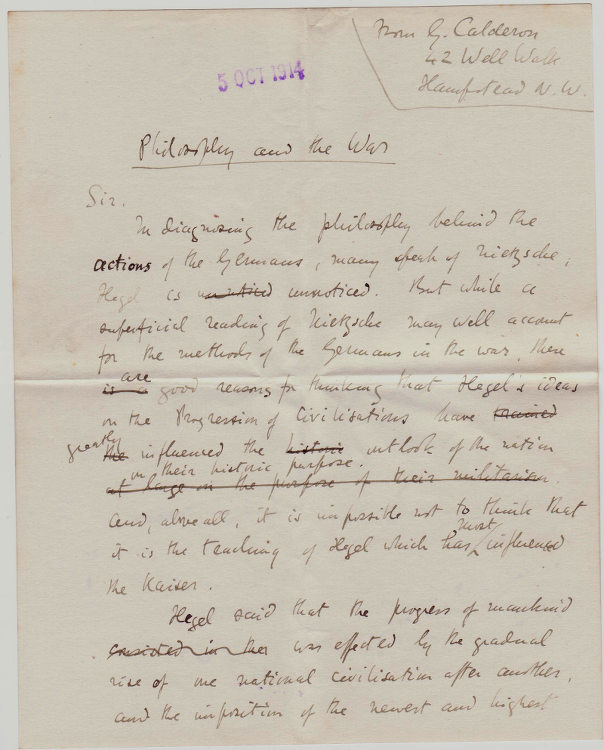 From G. Calderon
42 Well Walk
Hampstead N.W.
5 OCT 1914
Philosophy and the War
Sir.
In diagnosing the philosophy behind the
actions of the Germans, many speak of Nietzsche;
Hegel is unnoticed. But while a
superficial reading of Nietzsche may well account
for the methods of the Germans in the war, there
are
is a good reasons for thinking that Hegel's ideas
on the Progression of Civilisations have trained
greatly
the influenced the historic outlook of the nation
on their historic purpose.
at large on the purpose of their militarism.
And, above all, it is impossible not to think that
most
it is the teaching of Hegel which has influenced
the Kaiser.
Hegel said that the progress of mankind
consisted in the was effected by the gradual
rise of one national civilisation after another,
and the imposition of the newest and highest